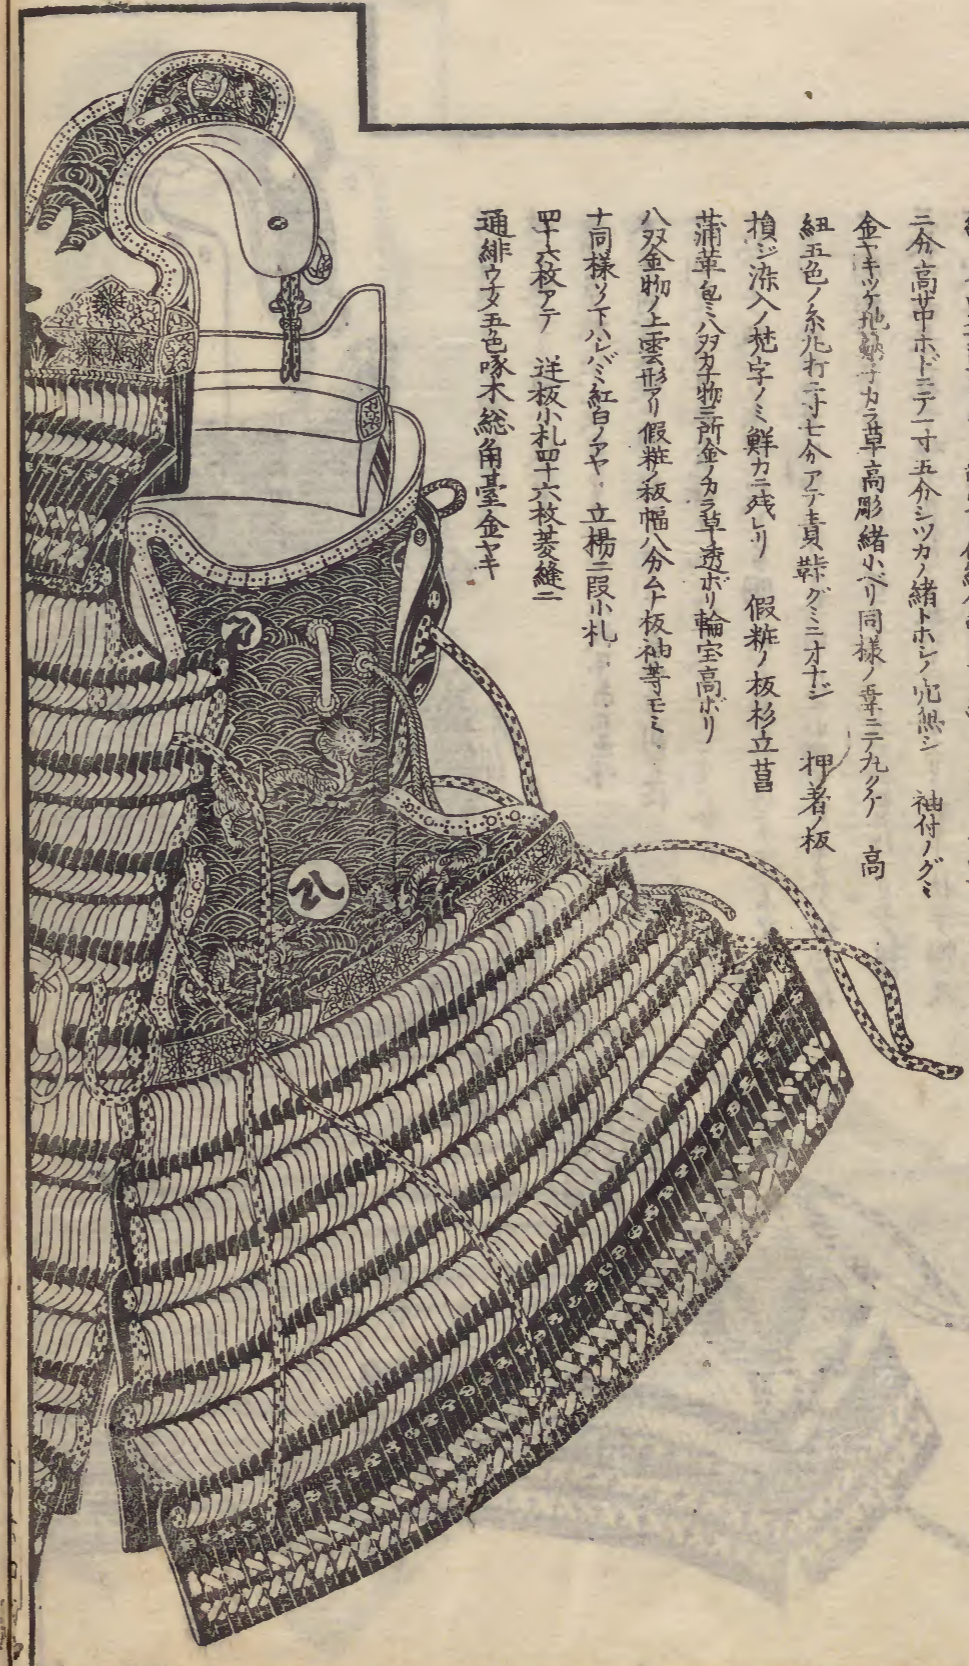 二分高サ中ホドニテ一寸五分シツカノ緒トホシノ穴無シ 袖付ノグミ
金ヤキツケ地 カラ草高彫緒小ベリ同様ノ韋ニテ九クケ 高
紐五色ノ糸 打二寸七分アテ責鞐グミニオナジ 押着ノ板
損ジ染入ノ梵字ノミ鮮カニ残レリ 假粧ノ板杉立菖
蒲革包ミ八双カナ物三所金ノカラ草透ボリ輪宝高ボリ
八双金物ノ上雲形アリ假粧ノ板幅八分ムナ板袖等モミ
十同様ソノ下ハシバミ紅白ノアヤ 立揚二段小札
四十六枚アテ 逆板小札四十六枚菱縫二
通緋ウナメ五色啄木総角臺金ヤキ